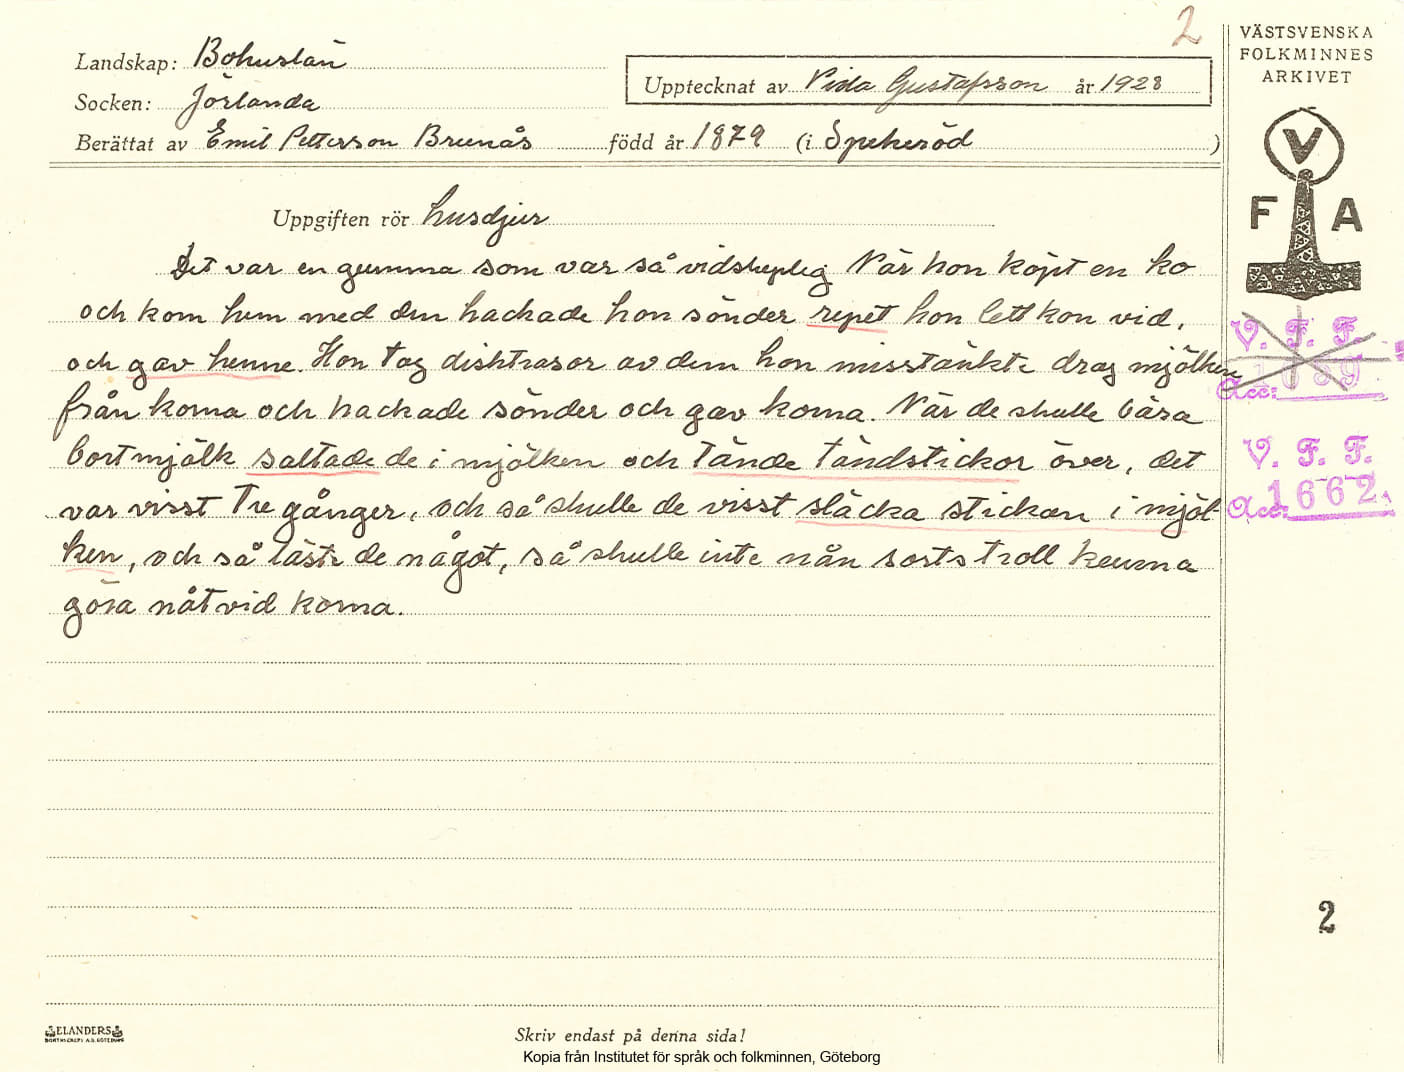 2
VÄSTSVENSKA
FOLKMINNES
ARKIVET
Landskap: Bohuslän
Upptecknat av Vida Gustafsson år 1928
Socken: Jörlanda
Berättat av Emil Petterson Brunås född år 1879 (i Spekeröd)
V
F A
Uppgiften rör husdjur
Det var en gumma som var så vidskeplig När hon köpt en ko
och kom hem med den hackade hon sönder repet hon lett kon vid,
och gav henne. Hon tog disktrasor av dem hon misstänkte drog mjölken
från korna och hackade sönder och gav korna. När de skulle bära
bort mjölk saltade de i mjölken och tände tändstickor över, det
var visst tre gånger, och så skulle de visst släcka stickan i mjöl
ken, och så läste de något, så skulle inte nån sorts troll kunna
göra nåt vid korna.
V. F. F.
Acc:
V. F. F.
Acc: 1662.
2
ELANDERS
Skriv endast på denna sida!
Kopia från Institutet för språk och folkminnen, Göteborg